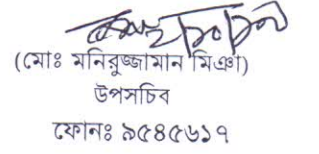 (মোঃ মনিরুজ্জামান মিঞা)
উপসচিব
ফোনঃ ৯৫৪৫৬১৭